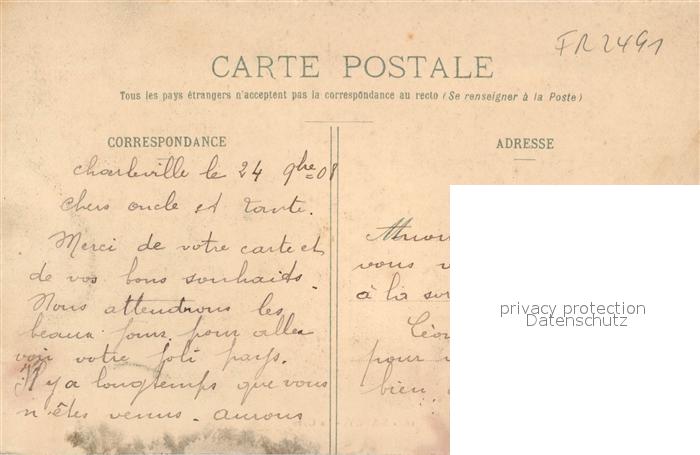 FR 2491
CARTE POSTALE
Tous les pays étrangers n'acceptent pas la correspondance au recto (Se renseigner à la Poste)
CORRESPONDANCE
Charleville le 24 9bre 08
Chers oncle et tante.
Merci de votre carte et
de vos bons souhaits.
Nous attendrons les
beaux jours pour aller
voir votre joli pays.
Il y a longtemps que vous
n'êtes venus. aurons
ADRESSE
vous
à la
pour
bien
privacy protection
Datenschutz